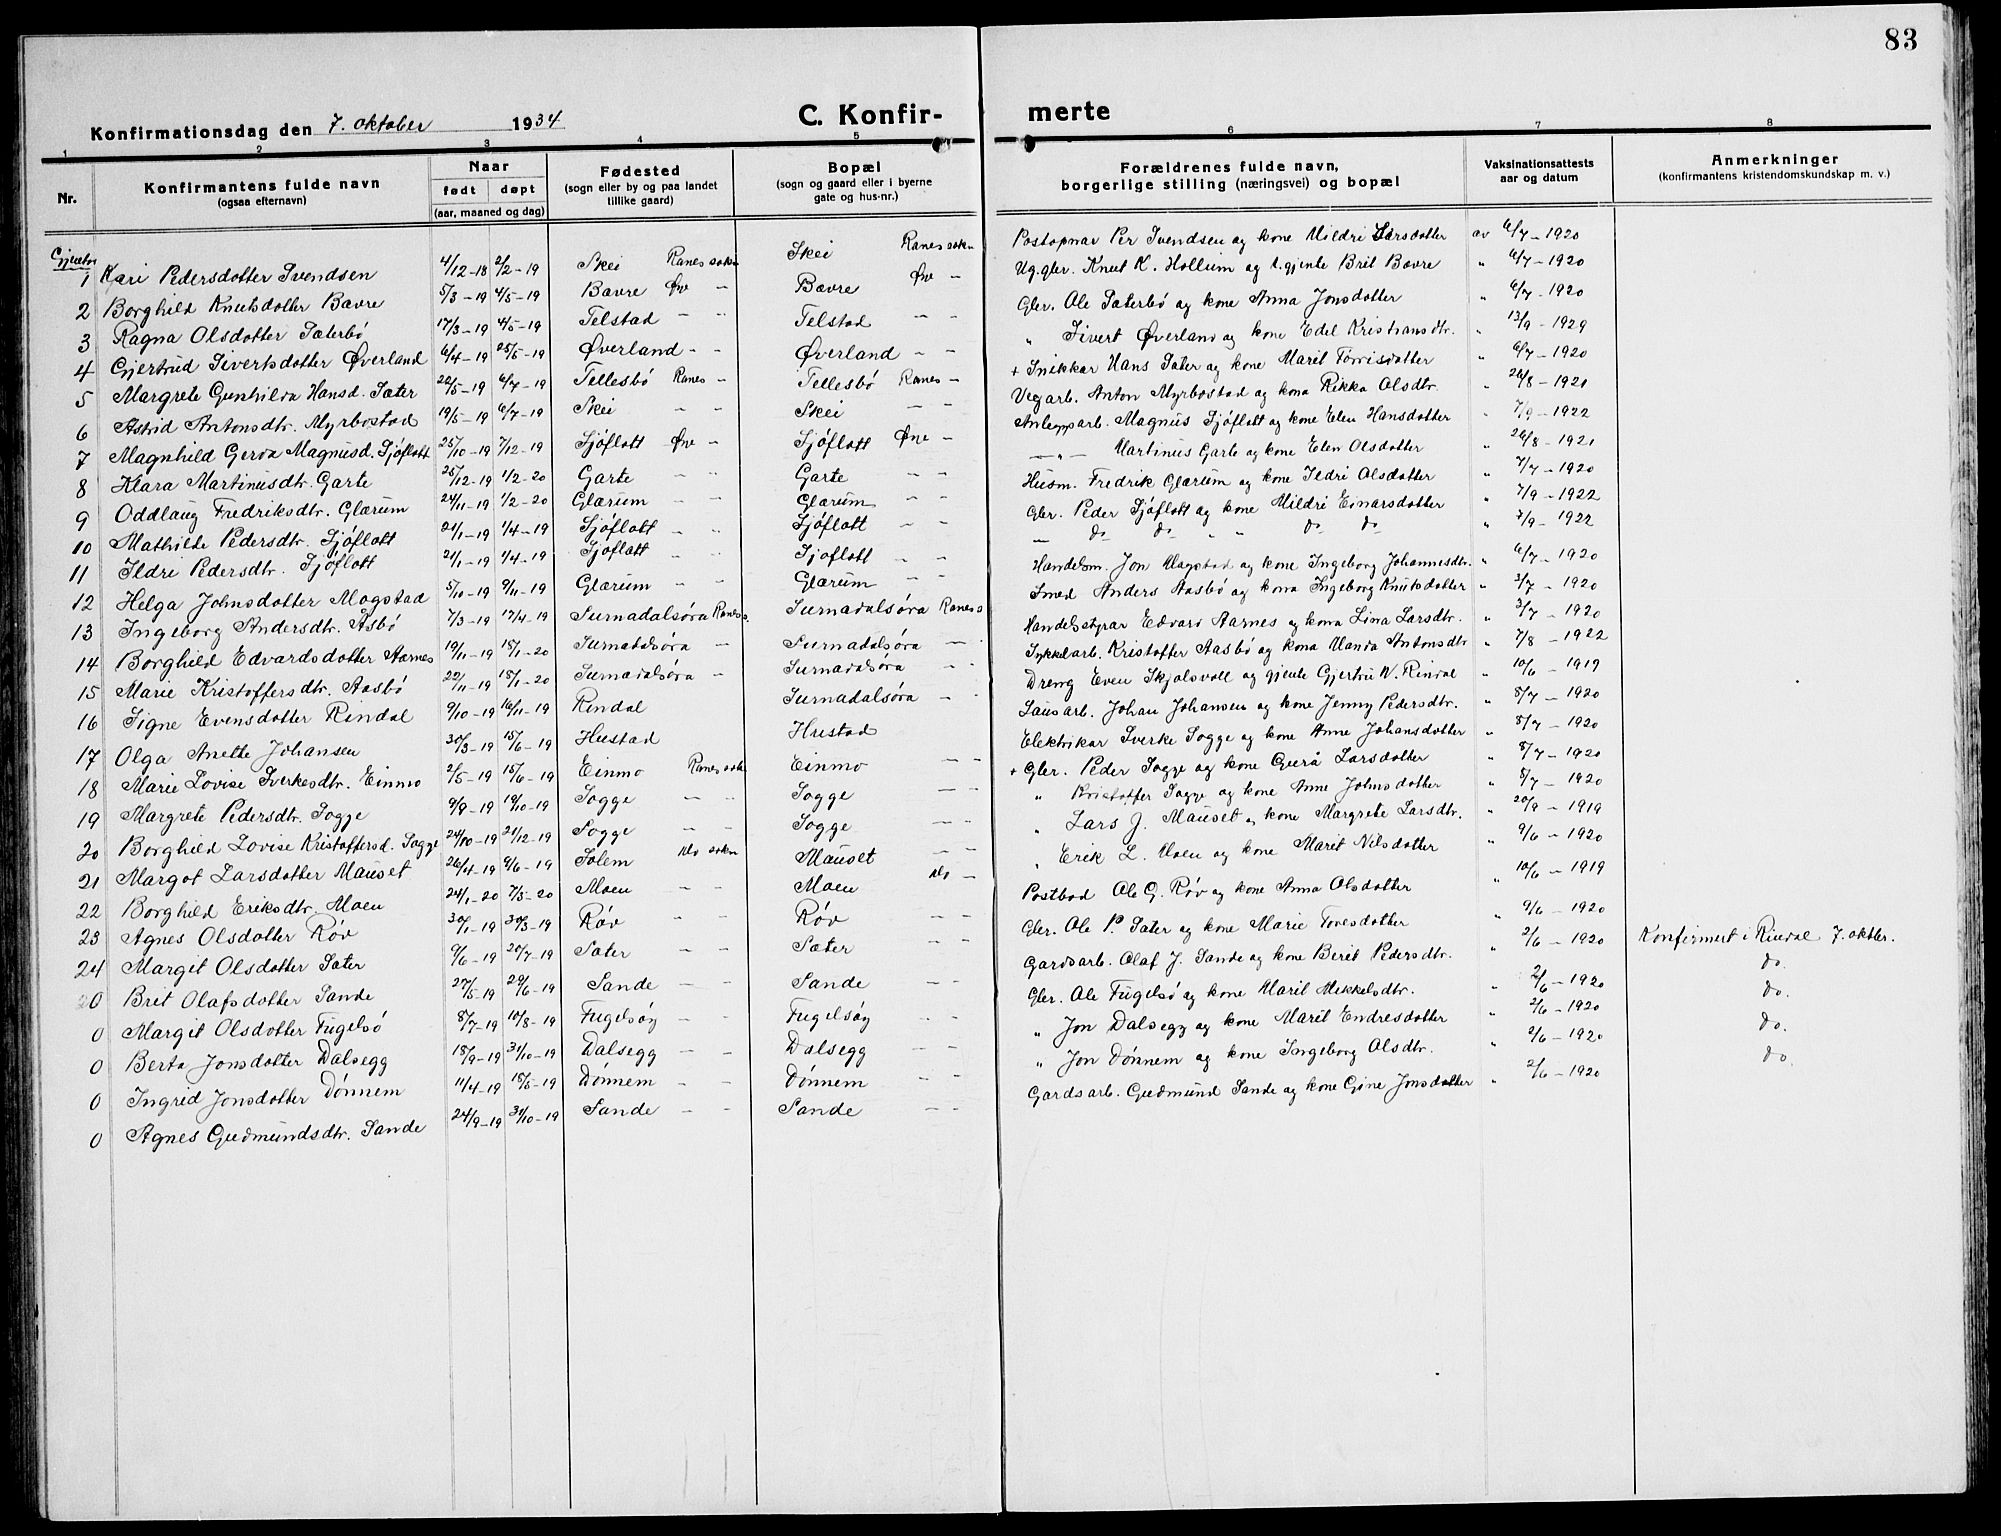 83
Konfirmationsdag den 7. oktober 1934 C. Konfirmerte
1 2 3 4 5 6 7 8
Nr. Konfirmantens fulde navn (ogsaa efternavn) Naar født døpt (aar, maaned og dag) Fødested (sogn eller by og paa landet tillike gaard) Bopæl (sogn og gaard eller i byerne gate og hus-nr.) Forældrenes fulde navn, borgerlige stilling (næringsvei) og bopæl Vaksinationsattests aar og datum Anmerkninger (konfirmantens kristendomskundskap m. v.)
1 Kari Pedersdotter Svendsen 4/12-18 2/2-19 Skei Ranes sokn Skei Ranes sokn Postopnar Per Svendsen og kone Mildri Larsdotter av 6/7-1920
2 Borghild Knutsdotter Bævre 5/3-19 4/5-19 Bævre Øve - Bævre Øve - Ug.gbr. Knut K. Hollum og t.gjente Brit Bævre " 6/7-1920
3 Ragna Olsdotter Sæterbø 17/3-19 4/5-19 Telstad - - Telstad - - Gbr. Ole Sæterbø og kone Anna Jonsdotter " 6/7-1920
4 Gjertrud Sivertsdotter Øverland 6/4-19 25/5-19 Øverland - - Øverland - - " Sivert Øverland og kone Edel Kristiansdtr. " 13/9-1929
5 Margrete Gunhilda Hansd. Sæter 22/5-19 6/7-19 Tellesbø Ranes - Tellesbø Ranes - + Snikkar Hans Sæter og kone Marit Tørrisdotter " 6/7-1920
6 Astrid Antonsdtr. Myrbostad 19/5-19 6/7-19 Skei - - Skei - - Vegarb. Anton Myrbostad og kona Rikka Olsdtr. " 26/8-1920
7 Magnhild Gerda Magnusd. Sjøflott 25/10-19 7/12-19 Sjøflott Øve - Sjøflott Øve - Anleggsarb. Magnus Sjøflott og kone Elen Hansdotter " 7/9-1922
8 Klara Martinusdtr. Garte 25/12-19 1/2-20 Garte - - Garte - - - " - Martinus Garte og kone Elen Olsdotter " 26/8-1921
9 Oddlaug Fredriksdtr. Glærum 24/11-19 1/2-20 Glærum - - Glærum - - Husm. Fredrik Glærum og kone Ildri Olsdotter " 7/7-1920
10 Mathilde Pedersdtr. Sjøflott 21/1-19 1/4-19 Sjøflott - - Sjøflott - - Gbr. Peder Sjøflott og kone Mildri Einarsdotter " 7/9-1922
11 Ildri Pedersdtr. Sjøflott 21/1-19 1/4-19 Sjøflott - - Sjøflott - - - do do " " do do " 7/9-1922
12 Helga Johnsdotter Mogstad 5/10-19 9/11-19 Glærum - - Glærum - - Handelsm. Jon Mogstad og kone Ingeborg Johannesdtr. " 6/7-1920
13 Ingeborg Andersdtr. Åsbø 7/3-19 17/4-19 Surnadalsøra Ranes s. Surnadalsøra Ranes s Smed Anders Aasbø og kona Ingeborg Knutsdotter " 3/7-1920
14 Borghild Edvardsdotter Aarnes 19/11-19 18/1-20 Surnadalsøra - Surnadalsøra - - Handelsstyrar Edvard Aarnes og kona Lina Larsdtr. " 3/7-1920
15 Marie Kristoffersdtr. Aasbø 22/11-19 18/1-20 Surnadalsøra - Surnadalsøra - - Sykkelarb. Kristoffer Aasbø og kona Manda Antonsdtr " 7/8-1922
16 Signe Evensdotter Rindal 9/10-19 16/11-19 Rindal Surnadalsøra - - Dreng Even Skjølsvoll og gjente Gjertru N. Rindal " 10/6-1919
17 Olga Anette Johansen 30/3-19 15/6-19 Hustad Hustad Sausarb. Johan Johansen og kone Jenny Pedersdtr. " 8/7-1920
18 Marie Lovise Sverkesdtr. Einmo 2/5-19 15/6-19 Einmo Ranes sokn Einmo - - Elektrikar Sverke Sogge og kone Anne Johansdotter " 8/7-1920
19 Margrete Pedersdtr. Sogge 9/9-19 19/10-19 Sogge - - Sogge - - + Gbr. Peder Sogge og kone Gurå Larsdotter " 8/7-1920
20 Borghild Lovise Kristoffersd. Sogge 24/10-19 21/12-19 Sogge - - Sogge - - " Kristoffer Sogge og kone Anne Johnsdotter " 8/7-1920
21 Margot Larsdotter Mauset 26/4-19 9/6-19 Solem Mo sokn Mauset - - " Lars J. Mauset og kone Margrete Larsdtr. " 20/9-1919
22 Borghild Eriksdtr. Moen 24/1-20 7/3-20 Moen - - Moen Mo - " Erik L. Moen og kone Marit Nilsdotter " 9/6-1920
23 Agnes Olsdotter Røv 30/1-19 30/3-19 Røv - - Røv - - Postbod Ole G. Røv og kone Anna Olsdotter " 10/6-1919
24 Margit Olsdotter Sæter 9/6-19 20/7-19 Sæter - - Sæter - - Gbr. Ole P. Sæter og kone Marie Toresdotter " 9/6-1920
0 Brit Olafsdotter Sande 27/5-19 29/6-19 Sande - - Sande - - Gardsarb. Olaf J. Sande og kone Berit Pedersdtr. " 2/6-1920 Konfirmert i Rindal 7. oktbr.
0 Margit Olsdotter Fugelsø 8/7-19 10/8-19 Fugelsøy - - Fugelsøy - - Gbr. Ole Fugelsø og kone Marit Mikkelsdtr. " 2/6-1920 do.
0 Berta Jonsdotter Dalsegg 18/9-19 31/10-19 Dalsegg - - Dalsegg - - " Jon Dalsegg og kone Marit Endresdotter " 2/6-1920 do.
0 Ingrid Jonsdotter Dønnem 11/4-19 18/5-19 Dønnem - - Dønnem - - " Jon Dønnem og kone Ingeborg Olsdtr. " 2/6-1920 do.
0 Agnes Gudmundsdtr. Sande 24/9-19 31/10-19 Sande - - Sande - - Gardsarb. Gudmund Sande og kone Gine Jonsdotter " 2/6-1920 do.